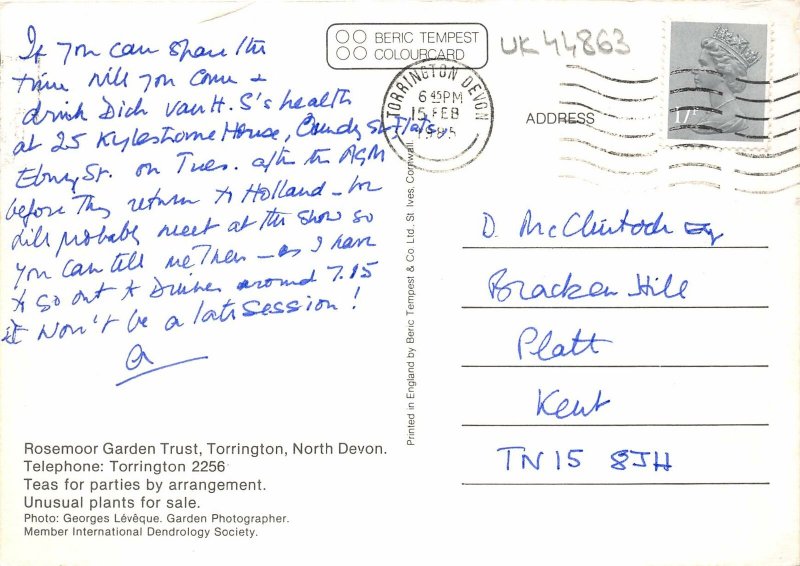 If you can spare the
time will you come &
drink Dick van H. S's health
at 25 Kylestrome House, Cundy St Flats,
Ebury St. on Tues. after the AGM
before they return to Holland – we
will probably meet at the show so
you can tell me then – as I have
to go out to Dinner around 7.15
it won't be a late session!
a
Rosemoor Garden Trust, Torrington, North Devon.
Telephone: Torrington 2256
Teas for parties by arrangement.
Unusual plants for sale.
Photo: Georges Lévêque. Garden Photographer.
Member International Dendrology Society.
BERIC TEMPEST
COLOURCARD
Printed in England by Beric Tempest & Co Ltd., St Ives, Cornwall.
TORRINGTON DEVON
6 45PM
15 FEB
1985
UK44863
17P
ADDRESS
D. McClintock Esq
Bracken Hill
Platt
Kent
TN15 8JH